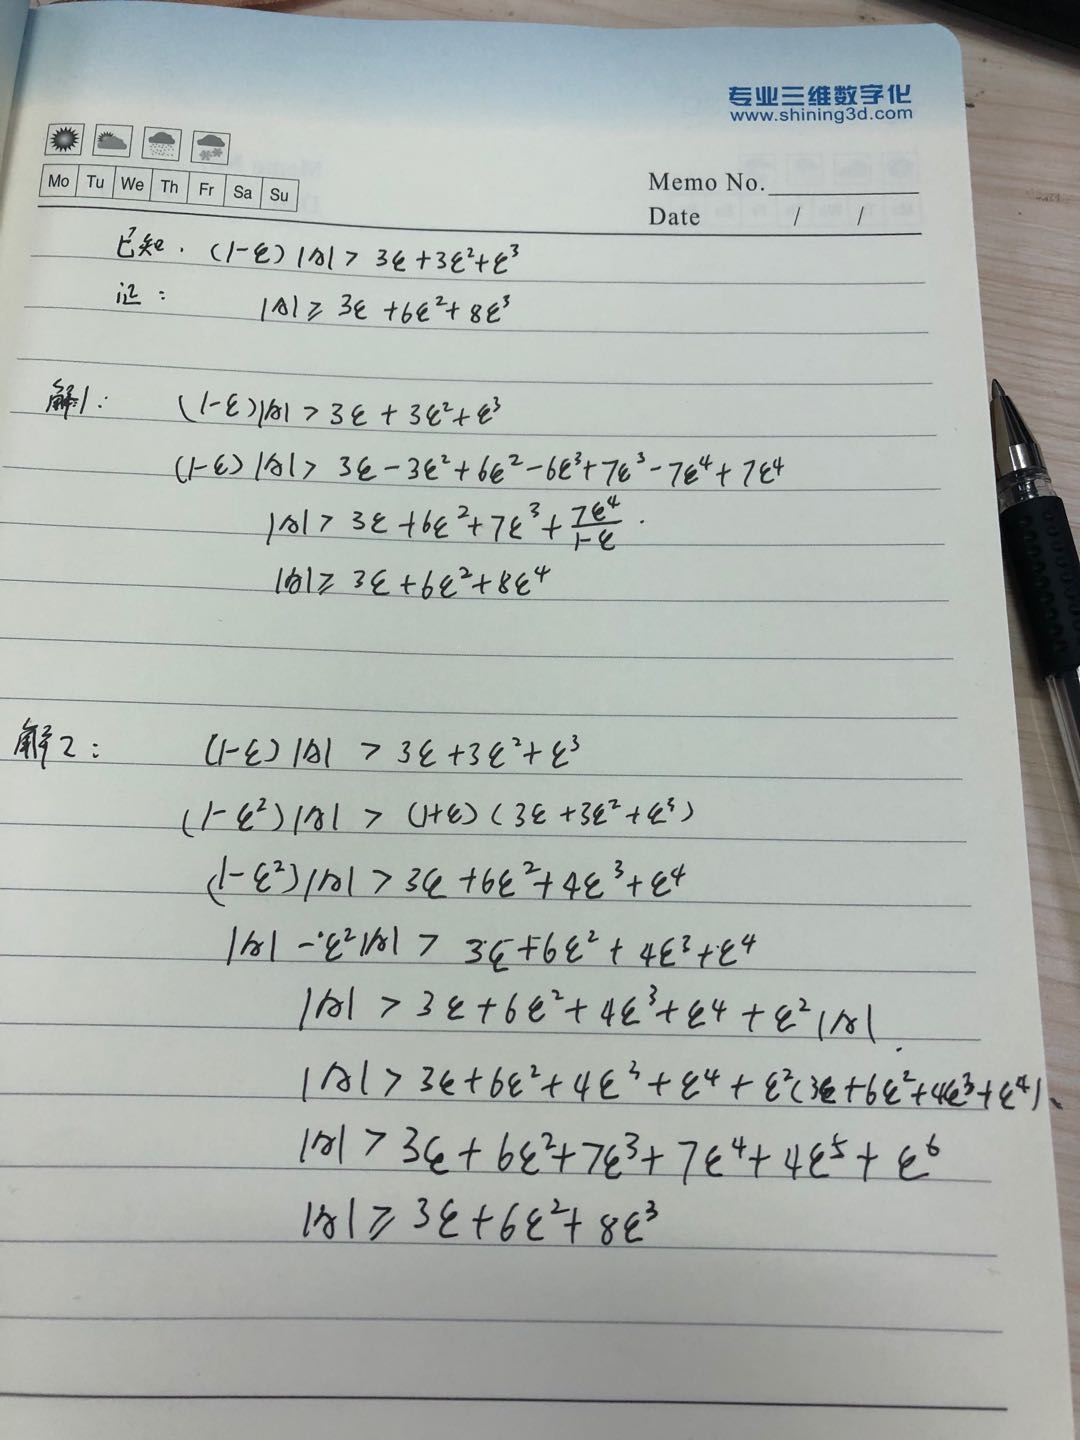 专业三维数字化
www.shining3d.com
Mo Tu We Th Fr Sa Su
Memo No.
Date / /
已知. (1-ε)|Δ| > 3ε+3ε²+ε³
证: |Δ| ≥ 3ε+6ε²+8ε³
解1: (1-ε)|Δ| > 3ε+3ε²+ε³
(1-ε)|Δ| > 3ε-3ε²+6ε²-6ε³+7ε³-7ε⁴+7ε⁴
|Δ| > 3ε+6ε²+7ε³+7ε⁴/(1-ε).
|Δ| ≥ 3ε+6ε²+8ε⁴
解2: (1-ε)|Δ| > 3ε+3ε²+ε³
(1-ε²)|Δ| > (1+ε)(3ε+3ε²+ε³)
(1-ε²)|Δ| > 3ε+6ε²+4ε³+ε⁴
|Δ|-ε²|Δ| > 3ε+6ε²+4ε³+ε⁴
|Δ| > 3ε+6ε²+4ε³+ε⁴+ε²|Δ|.
|Δ| > 3ε+6ε²+4ε³+ε⁴+ε²(3ε+6ε²+4ε³+ε⁴)
|Δ| > 3ε+6ε²+7ε³+7ε⁴+4ε⁵+ε⁶
|Δ| ≥ 3ε+6ε²+8ε³